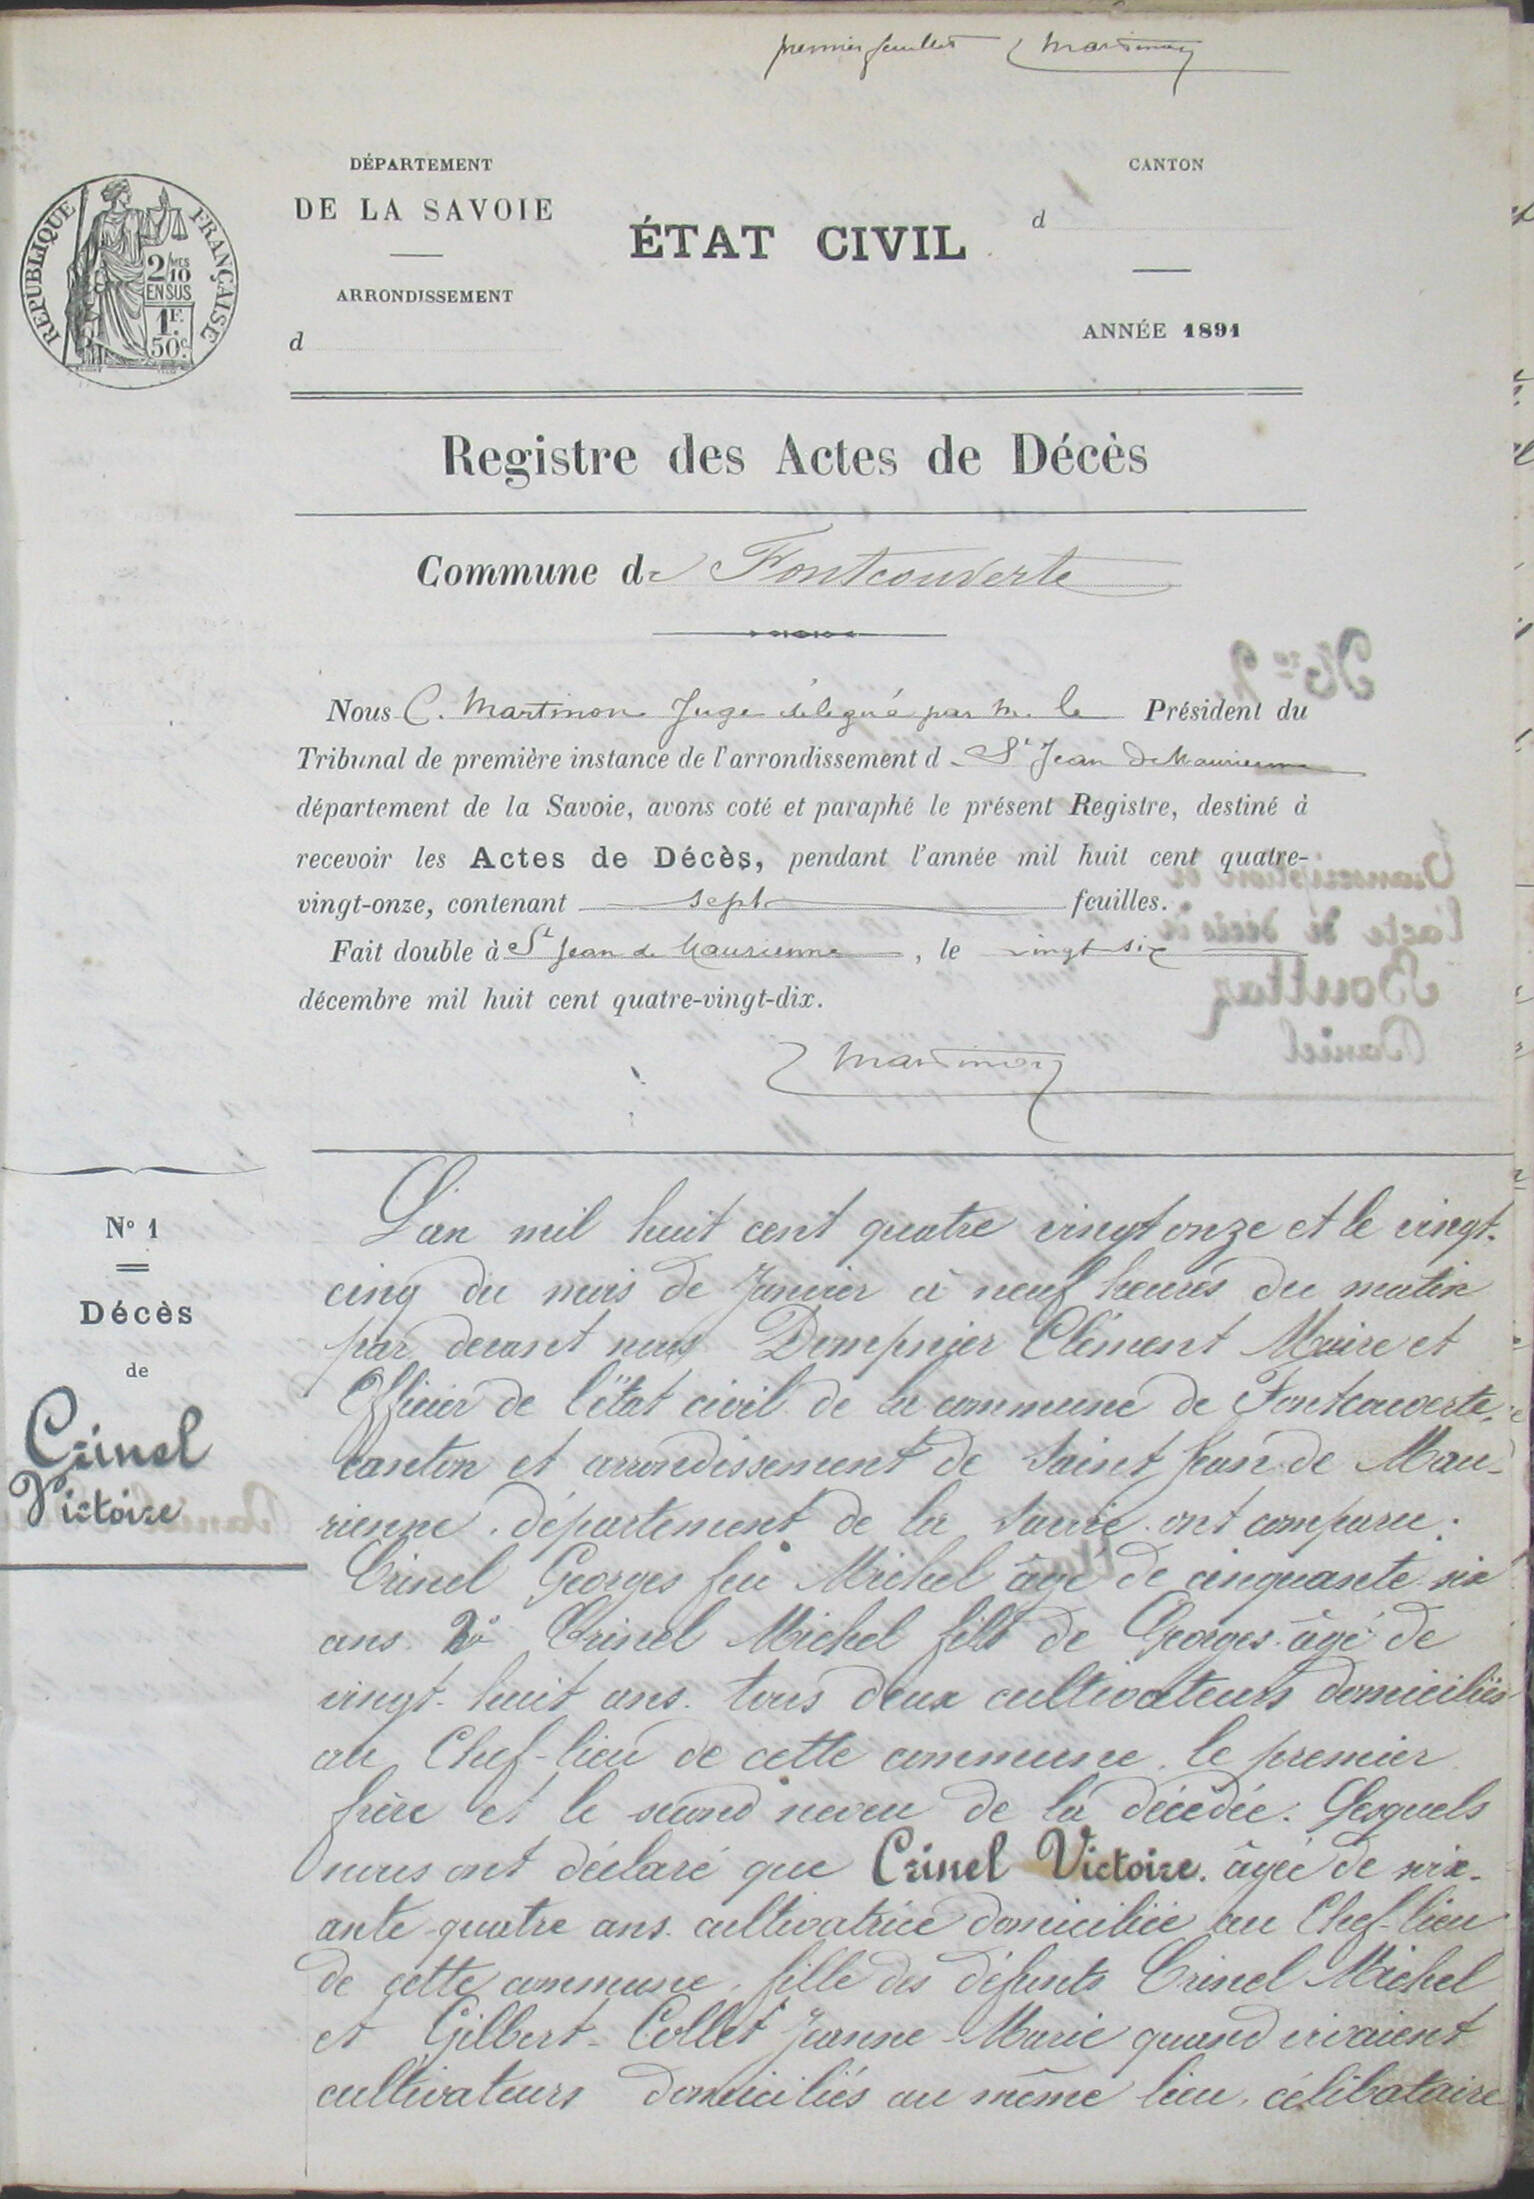 premier feuillet Martinon
DÉPARTEMENT
DE LA SAVOIE
ARRONDISSEMENT
d
ÉTAT CIVIL
CANTON
d
ANNÉE 1891
RÉPUBLIQUE FRANÇAISE
2/10 MES
EN SUS
1F.
50c.
Registre des Actes de Décès
Commune de Fontcouverte
Nous C. Martinon Juge délégué par M. le Président du
Tribunal de première instance de l'arrondissement d St Jean de Maurienne
département de la Savoie, avons coté et paraphé le présent Registre, destiné à
recevoir les Actes de Décès, pendant l'année mil huit cent quatre-
vingt-onze, contenant sept feuilles.
Fait double à St Jean de Maurienne, le vingt six
décembre mil huit cent quatre-vingt-dix.
Martinon
N° 1
Décès
de
Crinel
Victoire
L'an mil huit cent quatre vingt onze et le vingt-
cinq du mois de Janvier à neuf heures du matin
par devant nous Dompnier Clément Maire et
Officier de l'état civil de la commune de Fontcouverte,
canton et arrondissement de Saint Jean de Mau-
rienne, département de la Savoie. ont comparu.
Crinel Georges feu Michel âgé de cinquante six
ans. 2° Crinel Michel fils de Georges âgé de
vingt-huit ans. tous deux cultivateurs domiciliés
au Chef-lieu de cette commune, le premier
frère et le second neveu de la décédée. Lesquels
nous ont déclaré que Crinel Victoire. âgée de soix-
ante-quatre ans. cultivatrice domiciliée au Chef-lieu
de cette commune, fille des défunts Crinel Michel
et Gilbert-Collet Jeanne-Marie quand vivaient
cultivateurs domiciliés au même lieu, célibataire